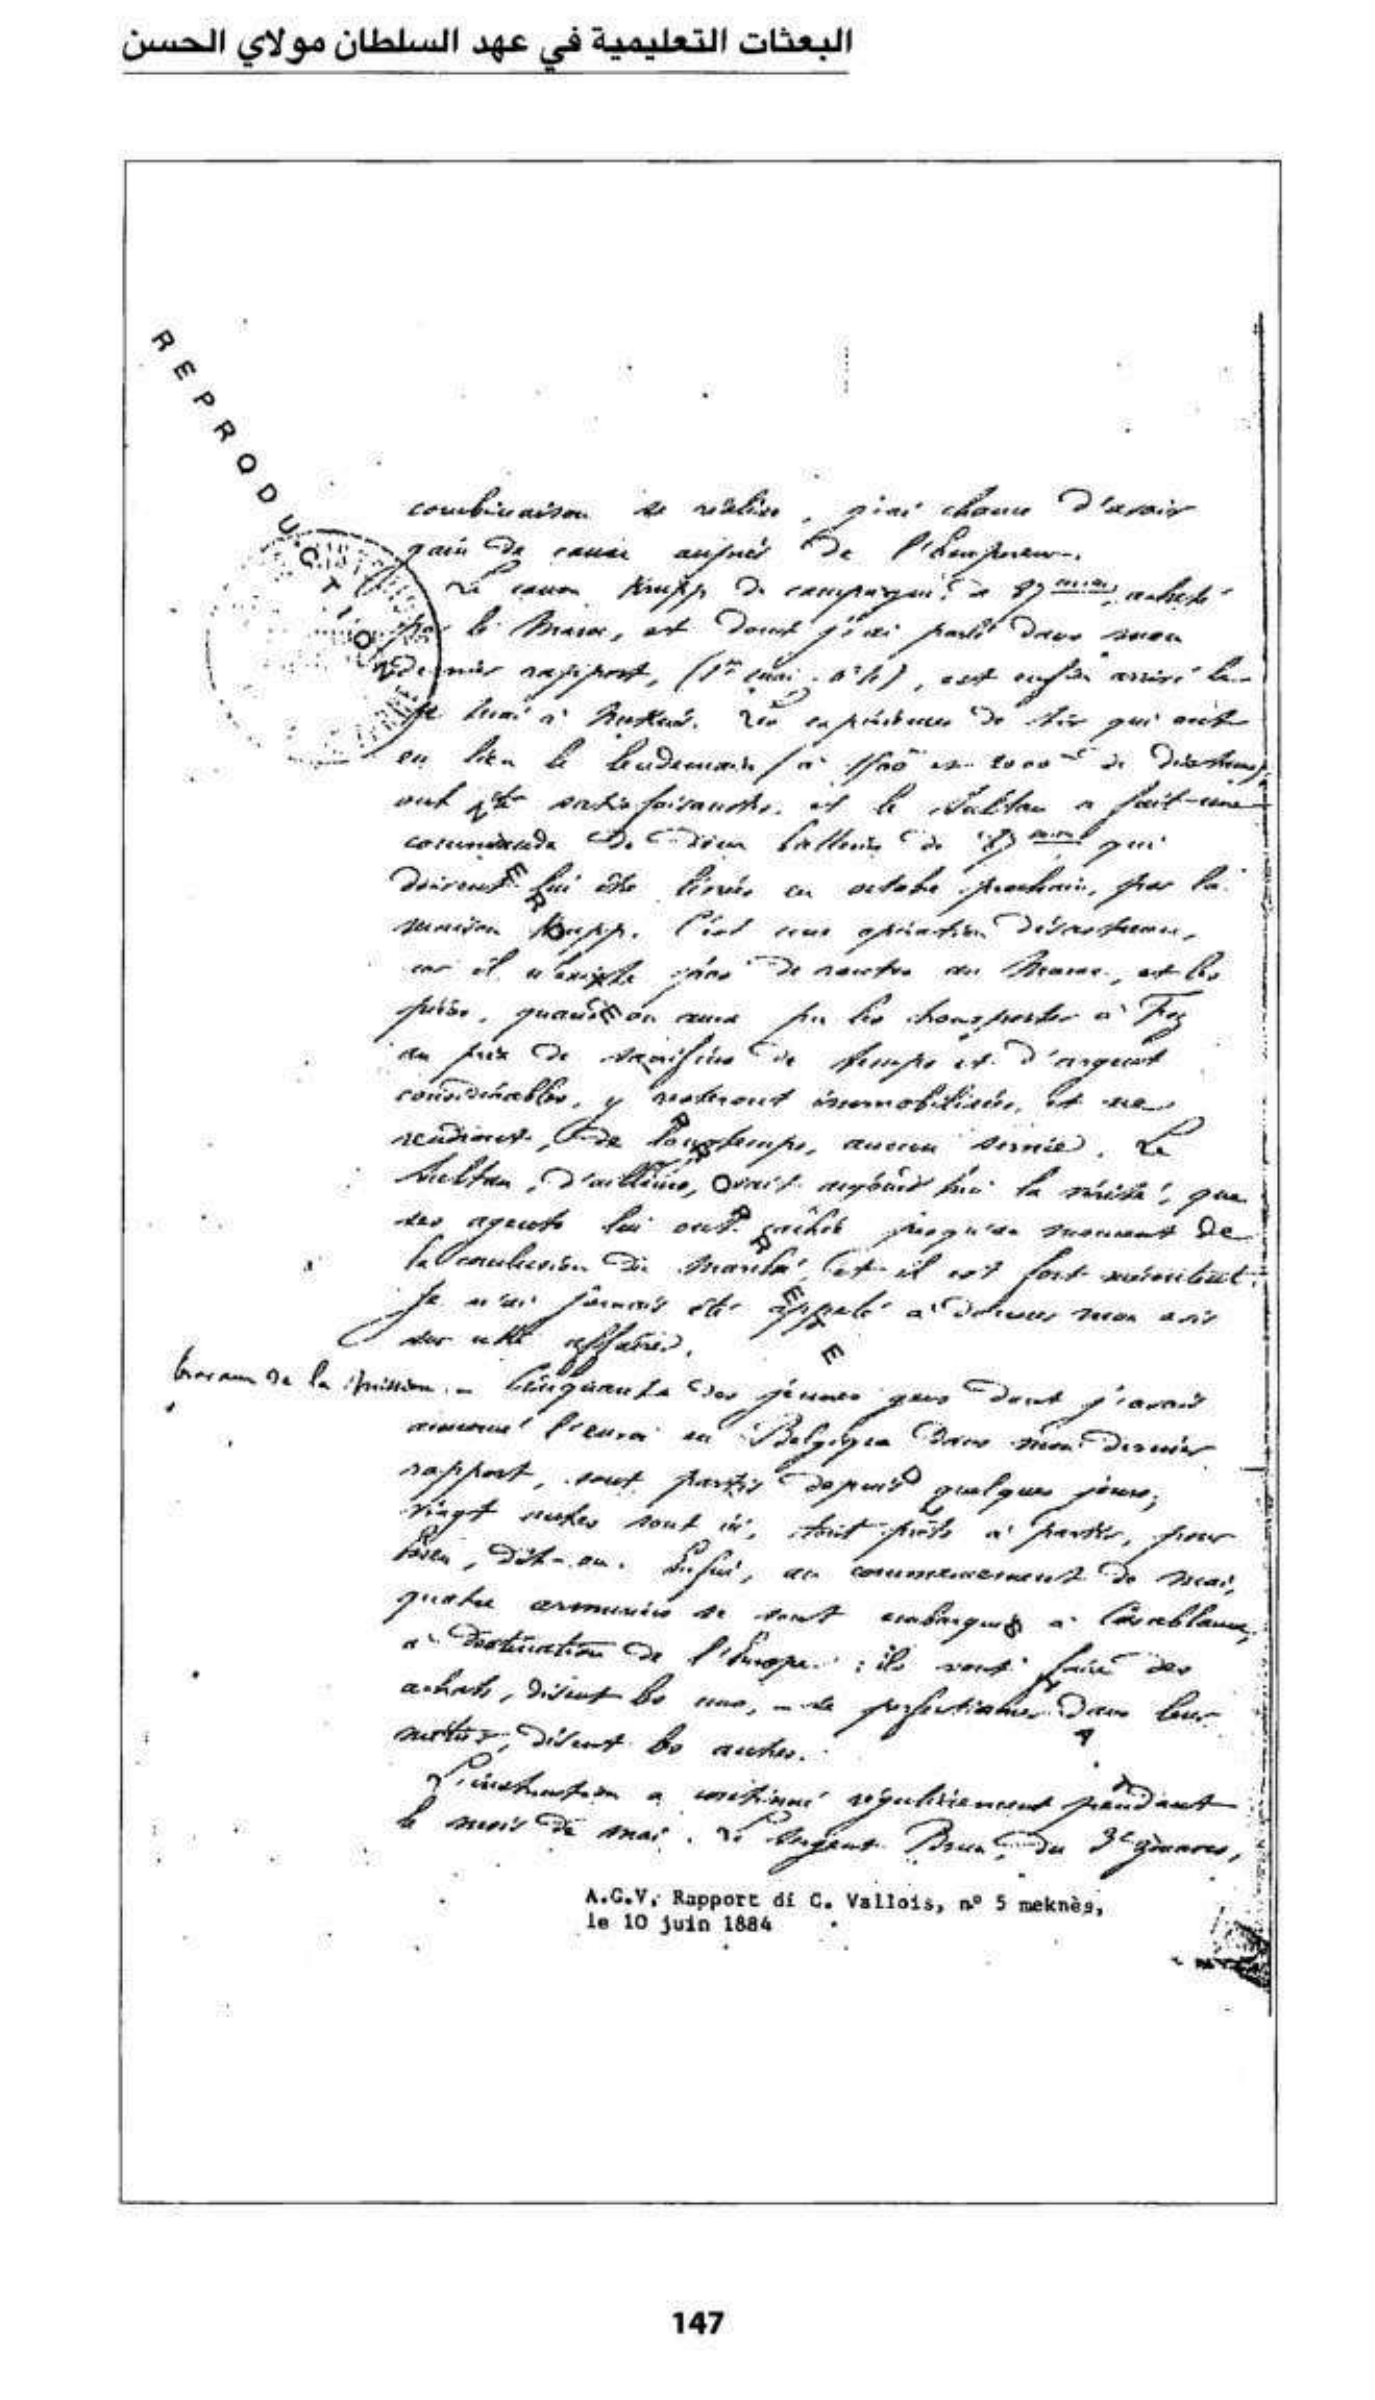 البعثات التعليمية في عهد السلطان مولاي الحسن
REPRODUCTION INTERDITE
combinaison se réalise, j'ai chance d'avoir
gain de cause auprès de l'Empereur.
Le canon Krupp de campagne de 87 mm, acheté
par le Maroc, et dont j'ai parlé dans mon
dernier rapport, (1er mai), est enfin arrivé le
mai à Meknès. Les expériences de tir qui ont
eu lieu le lendemain (à 1500 et 2000 m de distance)
ont été satisfaisantes, et le Sultan a fait une
commande de deux batteries de 87 mm qui
doivent lui être livrées en octobre prochain, par la
maison Krupp. C'est une opération désastreuse,
car il n'existe pas de routes au Maroc, et les
pièces, quand on aura pu les transporter à Fez
au prix de sacrifices de temps et d'argent
considérables, y resteront immobilisées, et ne
rendront, de longtemps, aucun service. Le
Sultan, d'ailleurs, sait aujourd'hui la vérité, que
ses agents lui ont cachée jusqu'au moment de
la conclusion du marché, et il est fort mécontent.
Je n'ai jamais été appelé à donner mon avis
sur cette affaire.
Travaux de la mission. – Cinquante des jeunes gens dont j'avais
annoncé l'envoi en Belgique dans mon dernier
rapport, sont partis depuis quelques jours;
vingt autres sont ici, tout prêts à partir, pour
dit-on. Enfin, au commencement de mai,
quatre armuriers se sont embarqués à Casablanca,
à destination de l'Europe : ils vont faire des
achats, disent les uns, – se perfectionner dans leur
métier, disent les autres.
L'instruction a continué régulièrement pendant
le mois de mai. Le Sergent Brun, du 3e zouaves,
A.G.V, Rapport di C. Vallois, nº 5 meknès,
le 10 juin 1884
147